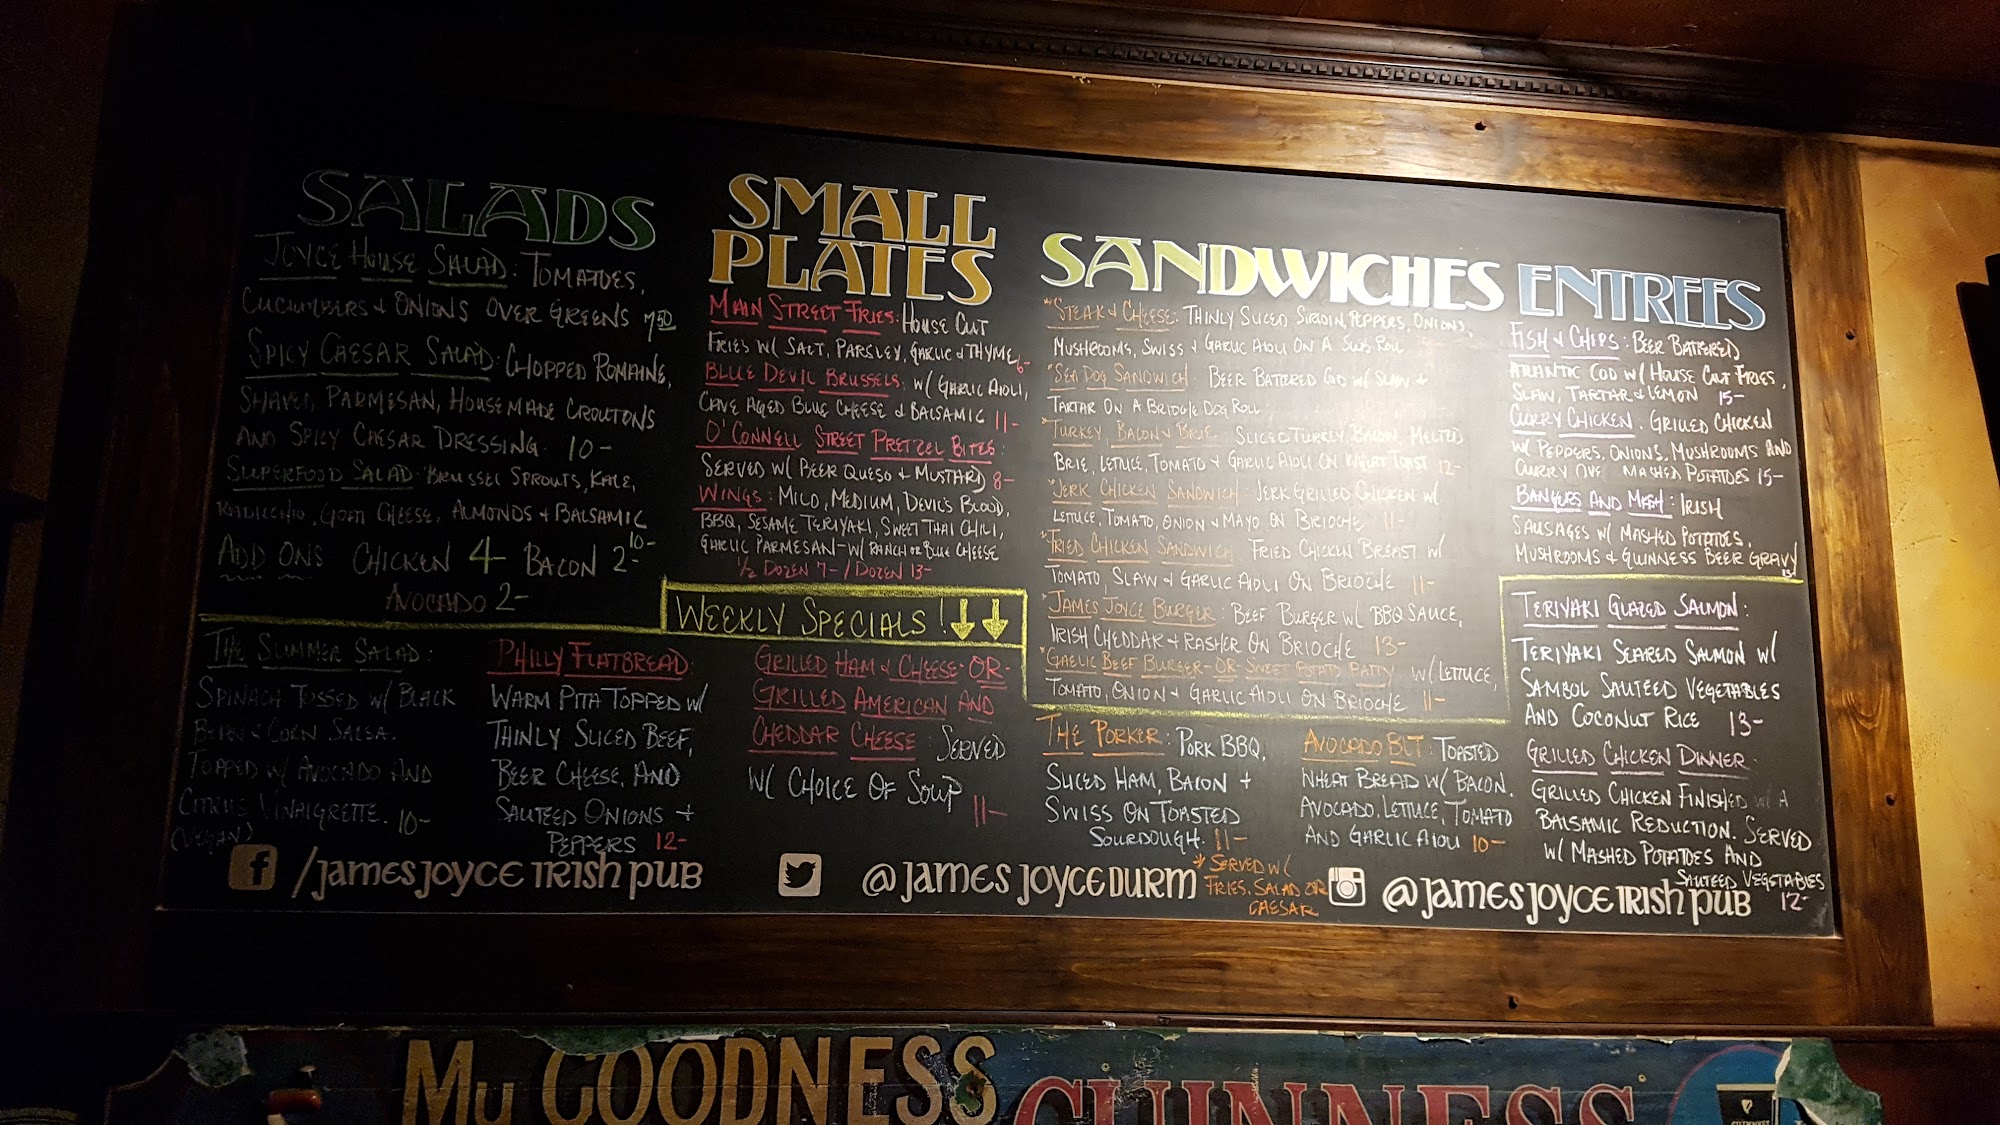 SALADS
JOYCE HOUSE SALAD: TOMATOES,
CUCUMBERS & ONIONS OVER GREENS 7.50
SPICY CAESAR SALAD: CHOPPED ROMAINE,
SHAVED PARMESAN, HOUSEMADE CROUTONS
AND SPICY CAESAR DRESSING. 10-
SUPERFOOD SALAD: BRUSSEL SPROUTS, KALE,
RADICCHIO, GOAT CHEESE, ALMONDS & BALSAMIC
10-
ADD ONS CHICKEN 4- BACON 2-
AVOCADO 2-
SMALL
PLATES
MAIN STREET FRIES: HOUSE CUT
FRIES W/ SALT, PARSLEY, GARLIC & THYME 6-
BLUE DEVIL BRUSSELS: W/ GARLIC AIOLI,
CAVE AGED BLUE CHEESE & BALSAMIC 11-
O'CONNELL STREET PRETZEL BITES:
SERVED W/ BEER QUESO & MUSTARD 8-
WINGS: MILD, MEDIUM, DEVIL'S BLOOD,
BBQ, SESAME TERIYAKI, SWEET THAI CHILI,
GARLIC PARMESAN - W/ RANCH OR BLUE CHEESE
1/2 DOZEN 7- / DOZEN 13-
SANDWICHES
*STEAK & CHEESE: THINLY SLICED SIRLOIN, PEPPERS, ONIONS,
MUSHROOMS, SWISS & GARLIC AIOLI ON A SUB ROLL
*SEA DOG SANDWICH: BEER BATTERED COD W/ SLAW &
TARTAR ON A BRIOCHE DOG ROLL
*TURKEY, BACON & BRIE: SLICED TURKEY, BACON, MELTED
BRIE, LETTUCE, TOMATO & GARLIC AIOLI ON WHEAT TOAST 12-
*JERK CHICKEN SANDWICH: JERK GRILLED CHICKEN W/
LETTUCE, TOMATO, ONION & MAYO ON BRIOCHE 11-
*FRIED CHICKEN SANDWICH: FRIED CHICKEN BREAST W/
TOMATO, SLAW & GARLIC AIOLI ON BRIOCHE 11-
*JAMES JOYCE BURGER: BEEF BURGER W/ BBQ SAUCE,
IRISH CHEDDAR & RASHER ON BRIOCHE 13-
*GAELIC BEEF BURGER -OR- SWEET POTATO PATTY W/ LETTUCE,
TOMATO, ONION & GARLIC AIOLI ON BRIOCHE 11-
ENTREES
FISH & CHIPS: BEER BATTERED
ATLANTIC COD W/ HOUSE CUT FRIES,
SLAW, TARTAR & LEMON 15-
CURRY CHICKEN: GRILLED CHICKEN
W/ PEPPERS, ONIONS, MUSHROOMS AND
CURRY OVE MASHED POTATOES 15-
BANGERS AND MASH: IRISH
SAUSAGES W/ MASHED POTATOES,
MUSHROOMS & GUINNESS BEER GRAVY
WEEKLY SPECIALS!
THE SUMMER SALAD:
SPINACH TOSSED W/ BLACK
BEAN & CORN SALSA.
TOPPED W/ AVOCADO AND
CITRUS VINAIGRETTE. 10-
(VEGAN)
PHILLY FLATBREAD:
WARM PITA TOPPED W/
THINLY SLICED BEEF,
BEER CHEESE, AND
SAUTEED ONIONS &
PEPPERS 12-
GRILLED HAM & CHEESE -OR-
GRILLED AMERICAN AND
CHEDDAR CHEESE: SERVED
W/ CHOICE OF SOUP
11-
THE PORKER: PORK BBQ,
SLICED HAM, BACON &
SWISS ON TOASTED
SOURDOUGH. 11-
AVOCADO BLT: TOASTED
WHEAT BREAD W/ BACON,
AVOCADO, LETTUCE, TOMATO
AND GARLIC AIOLI 10-
*SERVED W/
FRIES, SALAD OR
CAESAR
TERIYAKI GLAZED SALMON:
TERIYAKI SEARED SALMON W/
SAMBOL SAUTEED VEGETABLES
AND COCONUT RICE 13-
GRILLED CHICKEN DINNER:
GRILLED CHICKEN FINISHED W/ A
BALSAMIC REDUCTION. SERVED
W/ MASHED POTATOES AND
SAUTEED VEGETABLES
12-
f /JAMES JOYCE IRISH PUB
@JAMES JOYCEDURM
@JAMESJOYCEIRISHPUB
My GOODNESS
GUINNESS